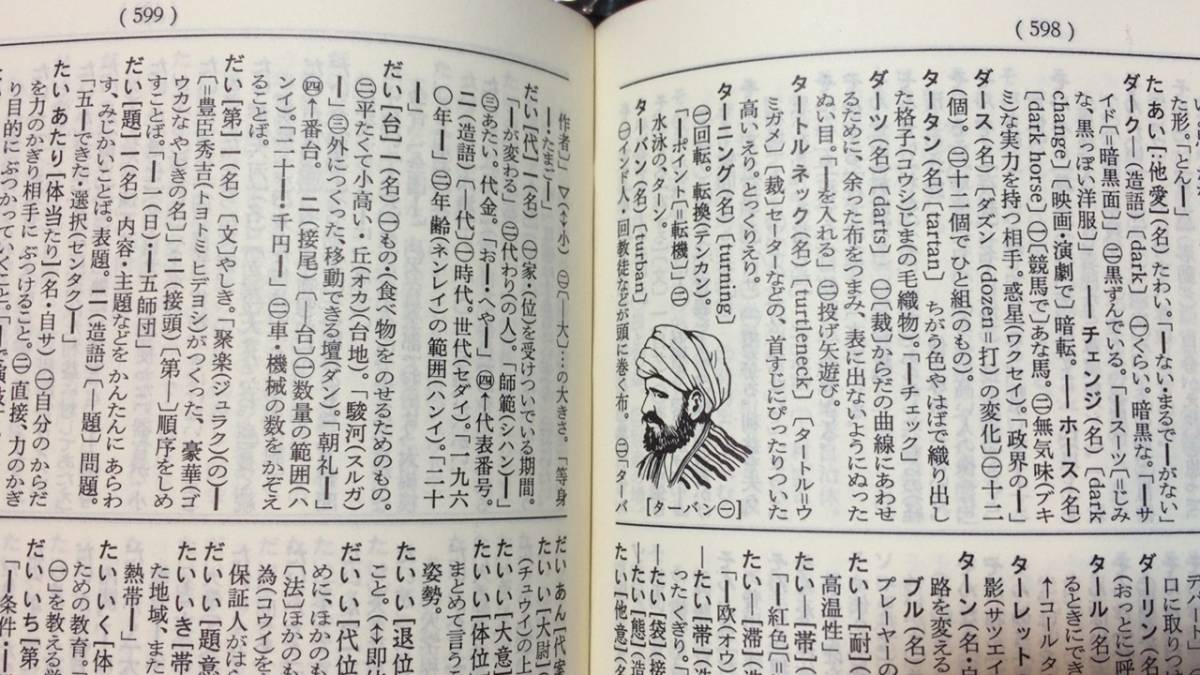 (598)
た形。「とん━
た あい[:他愛](名) たわい。「━ない・まるで━がない」
ダーク━(造語)〔dark〕 ㊀くらい。暗黒な。「━サ
イド〔=暗黒面〕」 ㊁黒ずんでいる。「━スーツ〔=じみ
な、黒っぽい洋服〕」 ━チェンジ(名)〔dark
change〕〔映画・演劇で〕暗転。━ホース(名)
〔dark horse〕 ㊀〔競馬で〕あな馬。㊁無気味(ブキ
ミ)な実力を持つ相手。惑星(ワクセイ)。「政界の━」
ダース(名)〔ダズン(dozen=打)の変化〕㊀十二
(個)。㊁十二個で ひと組(のもの)。
タータン(名)〔tartan〕 ちがう色やはばで織り出し
た格子(コウシ)じま(の毛織物)。「━チェック」
ダーツ(名)〔darts〕 ㊀〔裁〕からだの曲線にあわせ
るために、余った布をつまみ、表に出ないようにぬった
ぬい目。「━を入れる」㊁投げ矢遊び。
タートル ネック(名)〔turtleneck〕〔タートル=ウ
ミガメ〕〔裁〕セーターなどの、首すじにぴったりついた
高いえり。とっくりえり。
ターニング(名)〔turning〕
㊀回転。転換(テンカン)。
「━ポイント〔=転機〕」㊁
水泳の、ターン。
ターバン(名)〔turban〕
㊀インド人・回教徒などが頭に巻く布。㊁「ターバ
[ターバン㊀]
ロに取りつ
ダーリン(名)
(おっとに呼
タール(名)
るときにでき
↑コールタ
ターレット
影(サツエイ
ターン(名・自
路を変える
ブル(名)
プレーヤーの
たい━[耐]
高温性」
たい━[帯]
「━紅色〔=
たい━[滞](
「━欧(オウ)
━たい[帯](造
━たい[袋](接
ったくぎり。
━たい[態](造
たい[他意](名
(599)
作者」 ▽(↔小) ㊁〔━大〕…の大きさ。「等身
━・たまご━」
だい[代]一(名) ㊀家・(位)を受けついでいる期間。
「━が変わる」 ㊁代わり(の人)。「師範(シハン)━」
㊂あたい。代金。「お━・へや━」 ㊃↑代表番号。
二(造語)〔━代〕㊀時代。世代(セダイ)。「一九六
〇年━」 ㊁年齢(ネンレイ)の範囲(ハンイ)。「二十
だい[台]一(名) ㊀もの・(食べ物)をのせるためのもの。
㊁平たくて小高い・丘(オカ)(台地)。「駿河(スルガ)
━」㊂外につくった、移動できる壇(ダン)。「朝礼━」
㊃↑番台。 二(接尾)〔━台〕㊀数量の範囲(ハ
ンイ)。「二十━・千円━」 ㊁車・機械の数をかぞえ
ることば。
だい[第]一(名)〔文〕やしき。「聚楽(ジュラク)の━
〔=豊臣秀吉(トヨトミ ヒデヨシ)がつくった、豪華(ゴ
ウカ)なやしきの名〕」 二(接頭)〔第━〕順序をしめ
すことば。「━一(日)・━五師団」
だい[題]一(名) 内容・主題などを かんたんに あらわ
す、みじかいことば。表題。 二(造語)〔━題〕問題。
「五━できた・選択(センタク)━」
たい あたり[体当たり](名・自サ) ㊀自分のからだ
を力のかぎり相手に ぶつけること。㊁直接、力のかぎ
り目的に ぶつかっていくこと。「━で演技」
だい あん[代案
たい い[大尉](
(チュウイ)の上
たい い[大意](
まとめて言うこ
たい い[体位](
姿勢。
たい い[退位](
こと。(↔即位
だい い[代位](
めに、ほかのも
〔法〕ほかのも
為(コウイ)を
保証人がはら
だい い[題意](
たい いき[帯
た地域、また
熱帯━」
たい いく[体
ための教育。
㊀」を教える学
だい いち[第
「━条件・━